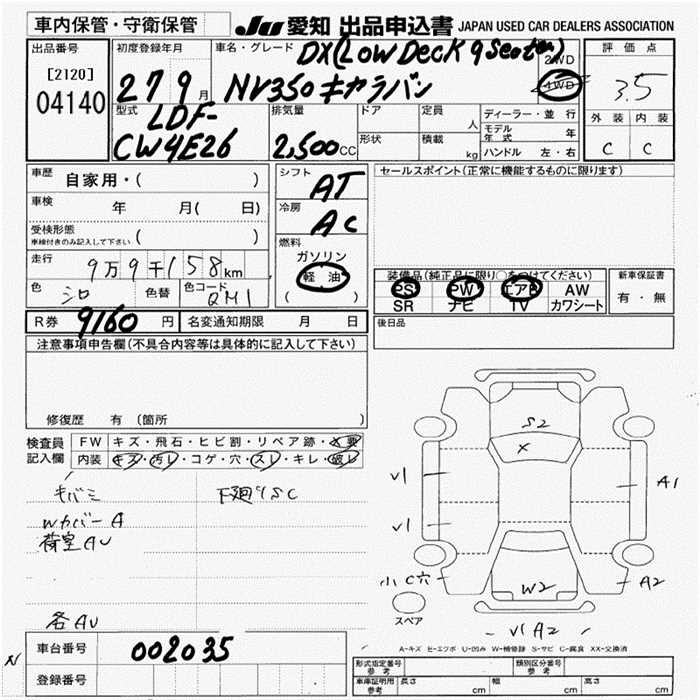 車内保管・守衛保管
JU 愛知 出品申込書 JAPAN USED CAR DEALERS ASSOCIATION
出品番号
[2120]
04140
初度登録年月
27 9月
車名・グレード
DX(Low Deck 9 Seater)
NV350キャラバン
2WD
4WD
評価点
3.5
外装 内装
C C
型式
LDF-
CW4E26
排気量
2,500CC
ドア
形状
定員 人
積載 kg
ディーラー・並行
モデル年式 年
ハンドル 左・右
車歴 自家用・( )
車検 年 月( 日)
受検形態
車検付きのみ記入して下さい ( )
走行 9万9千158km
色 シロ 色替 色コード QM1
シフト
AT
冷房
AC
燃料
ガソリン
軽油
( )
セールスポイント(正常に機能するものに限ります)
装備品(純正品に限り○をつけてください)
PS PW エアB AW
SR ナビ TV カワシート
新車保証書
有・無
R券 9160円 名変通知期限 月 日
後日品
注意事項申告欄(不具合内容等は具体的に記入して下さい)
修復歴 有 (箇所
検査員
記入欄
FW キズ・飛石・ヒビ割・リペア跡・X要
内装 キズ・汚レ・コゲ・穴・スレ・キレ・破レ
キバミ 下廻りSC
Wカバー A
荷室AU
各AU
S2
X
V1
A1
V1
小C穴
W2
A2
スペア
V1 A2
A-キズ E-エクボ U-凹み W-補修跡 S-サビ C-腐食 XX-交換済
N
車台番号 002035
登録番号
形式指定番号
参考
類別区分番号
参考
車庫証明用
参考
長さ cm 幅 cm 高さ cm